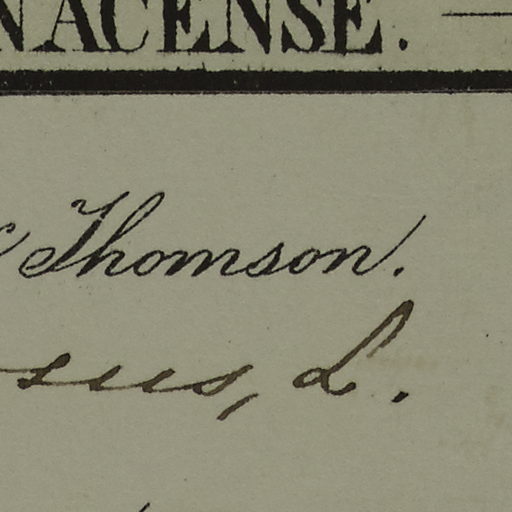 NACENSE.
Thomson.
sus, L.